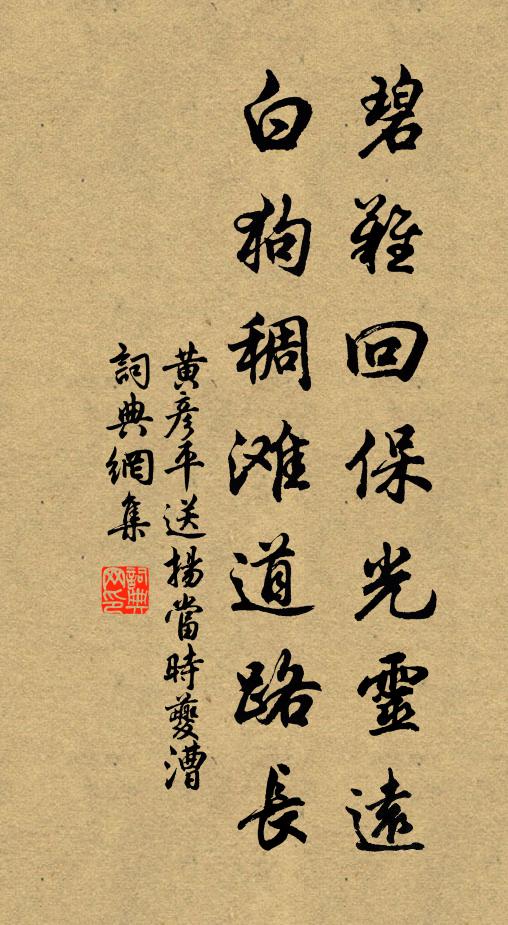 碧雞回保光靈遠
白狗稠滩道路長
黃彥平送揚當時夔漕
詞典網集
詞典网印